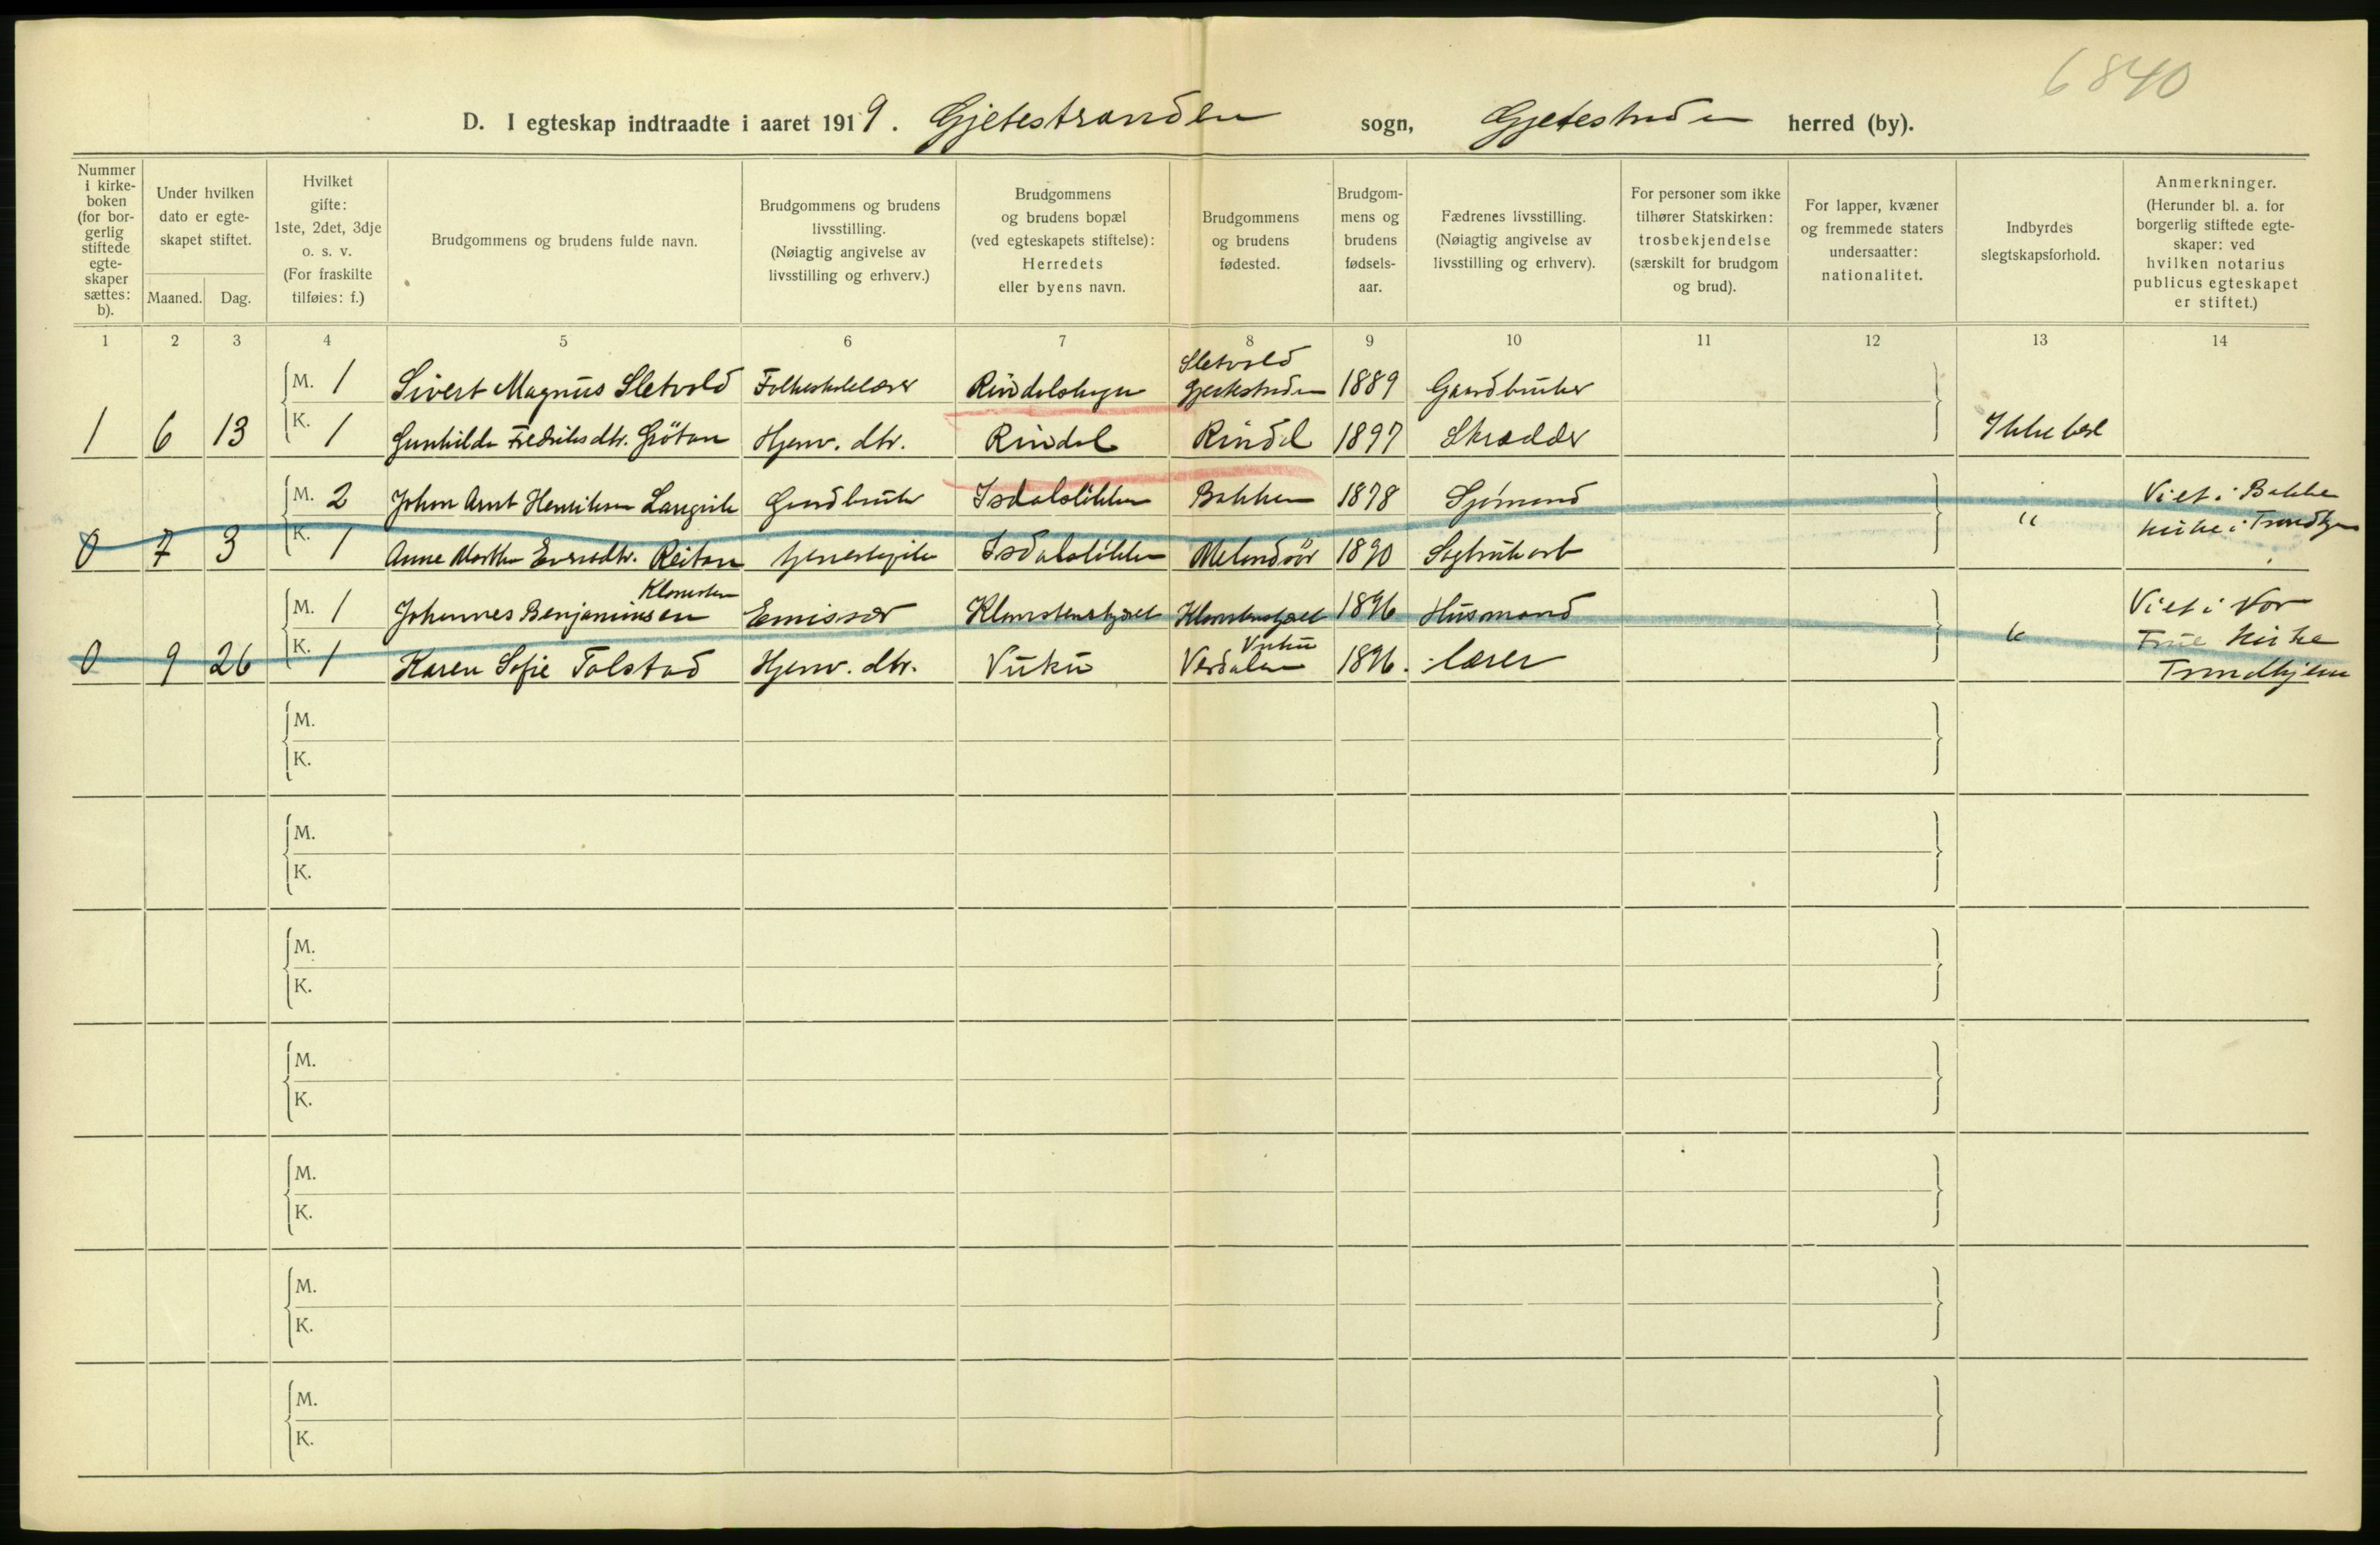 6840
D. I egteskap indtraadte i aaret 1919. Gjetestranden sogn, herred (by).
Nummer i kirkeboken (for borgerlig stiftede egteskaper sættes: b).
Under hvilken dato er egteskapet stiftet.
Maaned. Dag.
Hvilket gifte: 1ste, 2det, 3dje o. s. v. (For fraskilte tilføies: f.)
Brudgommens og brudens fulde navn.
Brudgommens og brudens livsstilling. (Nøiagtig angivelse av livsstilling og erhverv.)
Brudgommens og brudens bopæl (ved egteskapets stiftelse): Herredets eller byens navn.
Brudgommens og brudens fødested.
Brudgommens og brudens fødselsaar.
Fædrenes livsstilling. (Nøiagtig angivelse av livsstilling og erhverv).
For personer som ikke tilhører Statskirken: trosbekjendelse (særskilt for brudgom og brud).
For lapper, kvæner og fremmede staters undersaatter: nationalitet.
Indbyrdes slegtskapsforhold.
Anmerkninger. (Herunder bl. a. for borgerlig stiftede egteskaper: ved hvilken notarius publicus egteskapet er stiftet.)
1 2 3 4 5 6 7 8 9 10 11 12 13 14
Sletvold
M. 1 Sivert Magnus Sletvold Folkeskolelærer Rindalskogen 1889 Gaardbruker
1 6 13 K. 1 Gunhilda Fredriksdtr. Grötan Hjemv. dtr. Rindal Rindal 1897 Skrædder Ikke besl
M. 2 Johan Arnt Henriksen Gardbruker Isdalslökken Bakken 1878 Sjömand Viet i Bakke
0 7 3 K. 1 Anne Reitan Isdalslökken 1890 " kirke i Trondhjem
Klemeten
M. 1 Johannes Benjaminsen Emissær 1896 Husmand Viet i Vor
Vuku
0 9 26 K. 1 Karen Sofie Tolstad Hjemv. dtr. Vuku Verdalen 1896. lærer " Frue kirke
Trondhjem
M.
K.
M.
K.
M.
K.
M.
K.
M.
K.
M.
K.
M.
K.